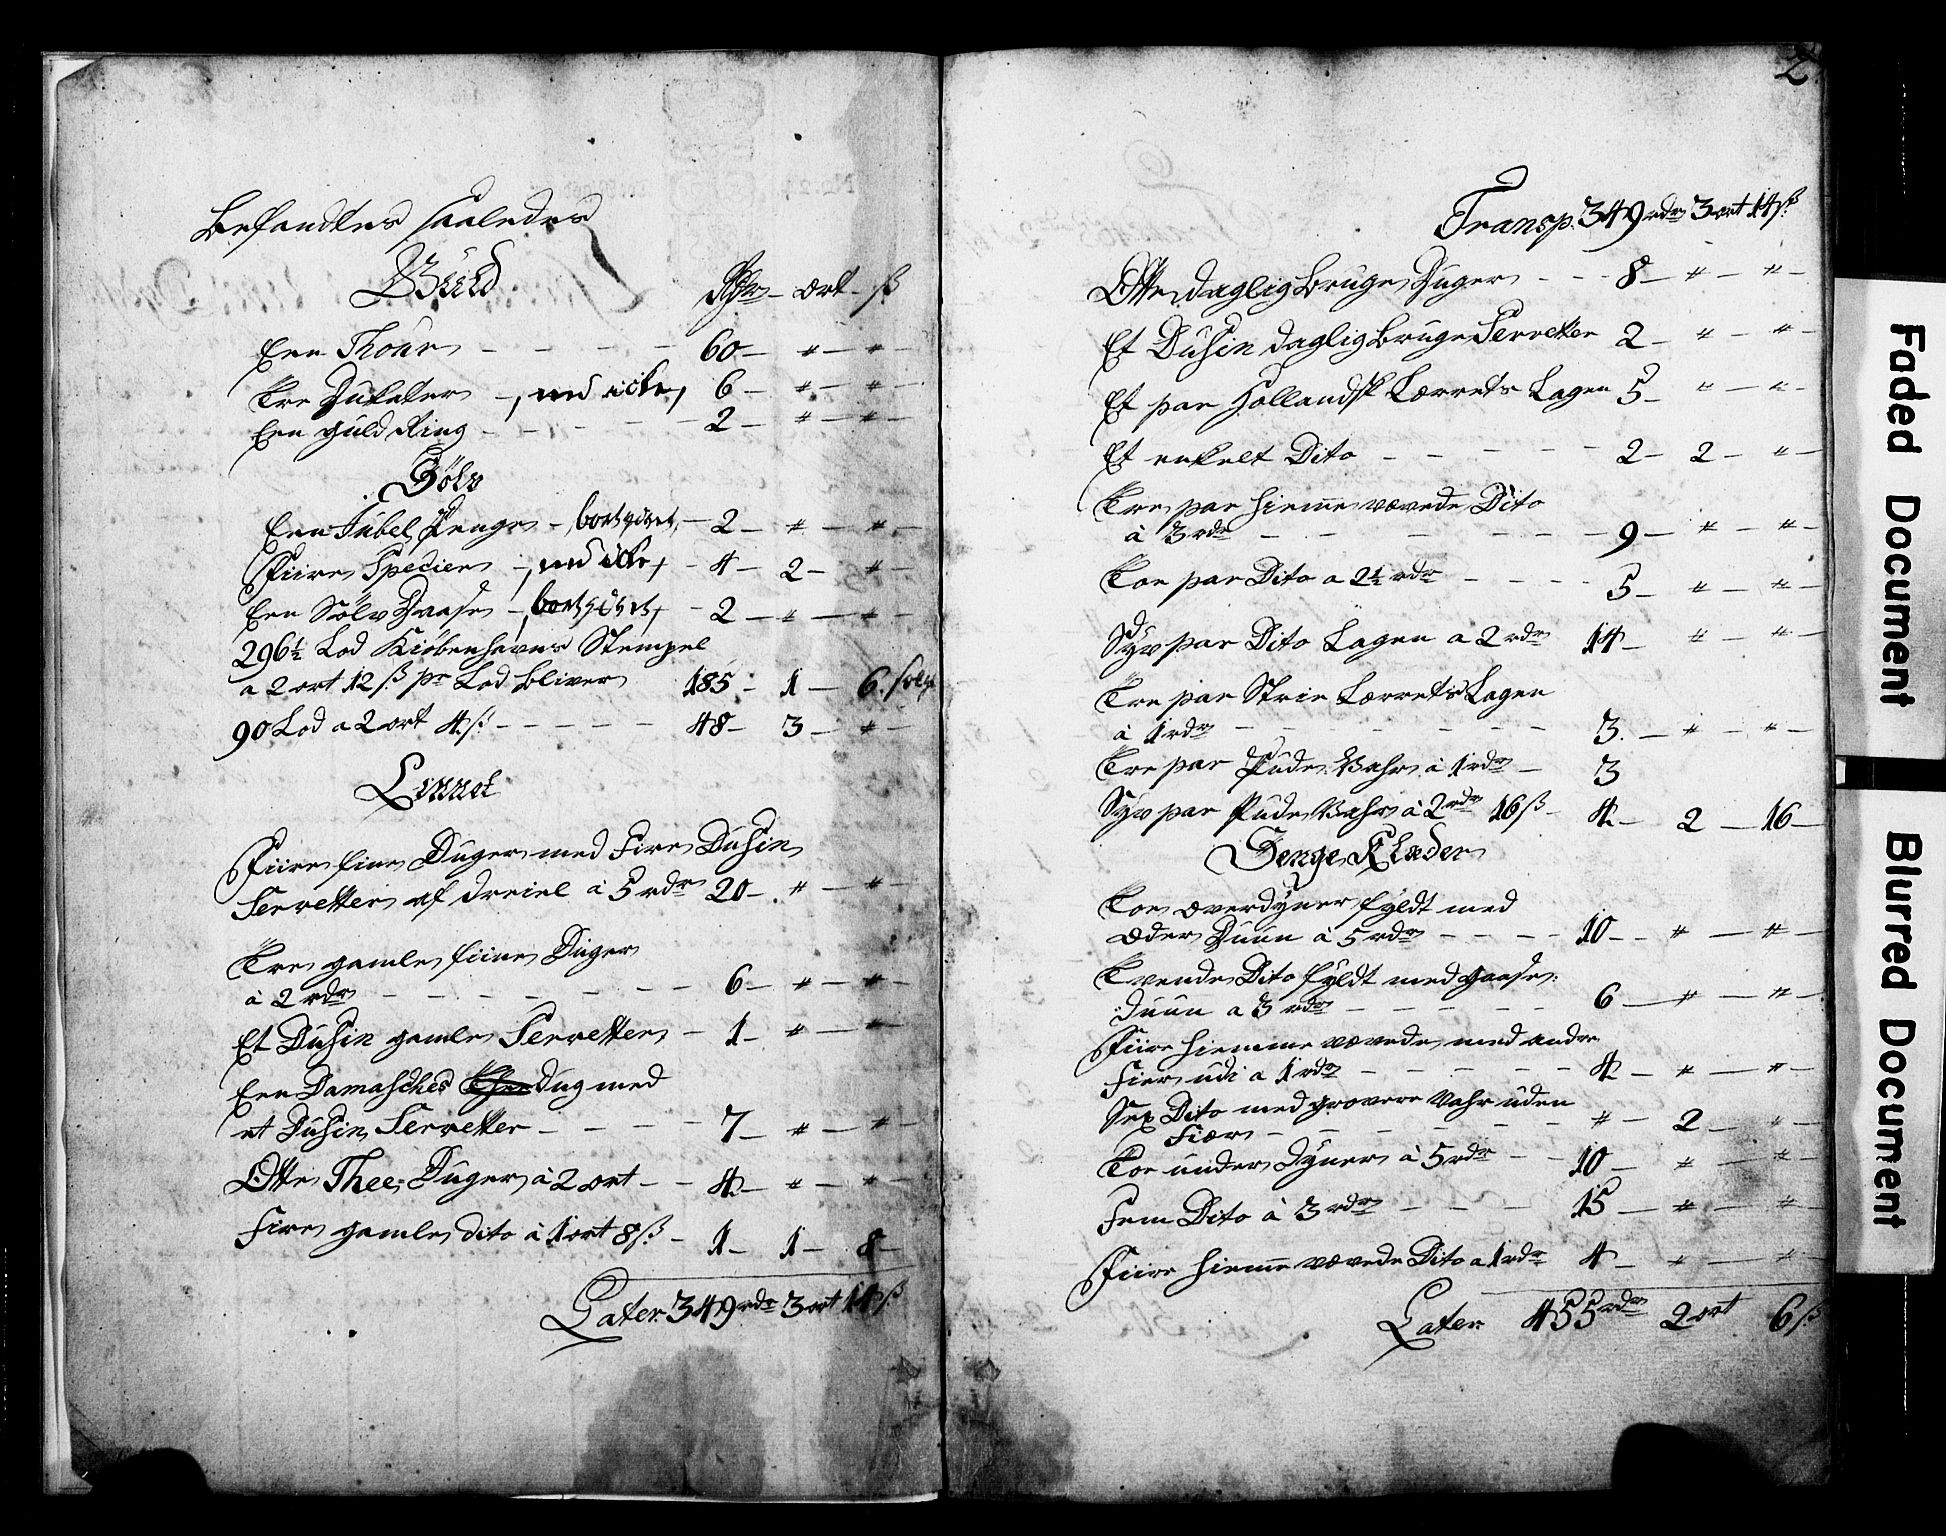 Befandtes saaledes
Guld
Rdr – ort – ß
Een Thour – – – – 60 – „ – „
Tre Dukater –, ned icke, 6 – „ – „
Een guld Ring – – – – – 2 – „ – „
Sölv
Een Jubel Penge – bortgivet, – 2 – „ – „
Fiire Specier –, ned icke, – 4 – 2 – „
Een Sölv Daase –, bortgivet, – 2 – „ – „
296½ Lod Kiöbenhavns Stempel
a 2 ort 12 ß pr Lod bliver 185 – 1 – 6. solgt
90 Lod a 2 ort 4 ß – – – – – 48 – 3 – „
Linnet
Fiire fine Duger med Fire Dusin
Servetter af Dreiel à 5 rdr 20 – „ – „
Tre gamle fiine Duger
à 2 rdr – – – – – – – 6 – „ – „
Et Dusin gamle Servetter – 1 – „ – „
Een Damasches Dug med
et Dusin Servetter – – – – 7 – „ – „
Otte Thee Duger à 2 ort – – 4 – „ – „
Fire gamle dito à 1 ort 8 ß – 1 – 1 – 8 –
Later 349 rdr 3 ort 14 ß
2
Transp. 349 rdr 3 ort 14 ß
Otte daglig Bruge Duger – – – 8 – „ – „ –
Et Dusin daglig Bruge Servetter 2 – „ – „ –
Et par Hollandsk Lærrets Lagen 5 – „ – „ –
Et enkelt Dito – – – – – 2 – 2 – „ –
Tre par hiemmevævede Dito
à 3 rdr – – – – – – – 9 – „ – „ –
Toe par Dito a 2½ rdr – – – – 5 – „ – „ –
Syv par Dito Lagen a 2 rdr 14 – „ – „ –
Tre par Strie Lærrets Lagen
à 1 rdr – – – – – – – 3. – „ – „ –
Tre par Pude Vahr à 1 rdr – 3
Syv par Pude Vahr à 2 rdr 16 ß – 4 – 2 – 16 –
Senge Klæder
Toe Overdyner fyldt med
Æder Duun à 5 rdr – – – – 10 – „ – „ –
Tvende Dito fyldt med Gaase
Duun a 3 rdr – – – – – 6 – „ – „ –
Fiire hiemme vævede med andre
Fier udi a 1 rdr – – – – – 4 – „ – „ –
Sex Dito med grovere Vahr uden
Fiær – – – – – – – „ – 2 – „ –
Toe under Dyner à 5 rdr – – 10 – „ – „ –
Fem Dito à 3 rdr – – – – 15 – „ – „ –
Fiire hiemmevævede Dito a 1 rdr 4 – „ – „ –
Later 455 rdr 2 ort 6 ß
Faded Document
Blurred Document